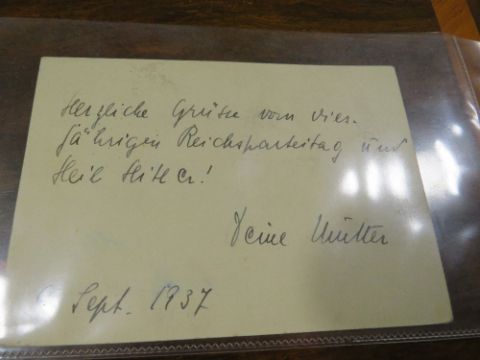 Herzliche Grüße vom dies-
jährigen Reichsparteitag und
Heil Hitler!
Deine Mutter
Sept. 1937